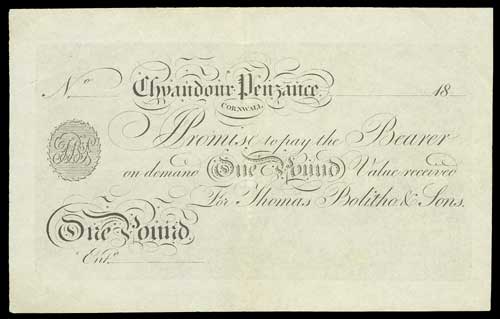 No Chyandour Penzance 18
CORNWALL
I Promise to pay the Bearer
on demand One Pound Value received
For Thomas Bolitho & Sons.
One Pound.
Entd.